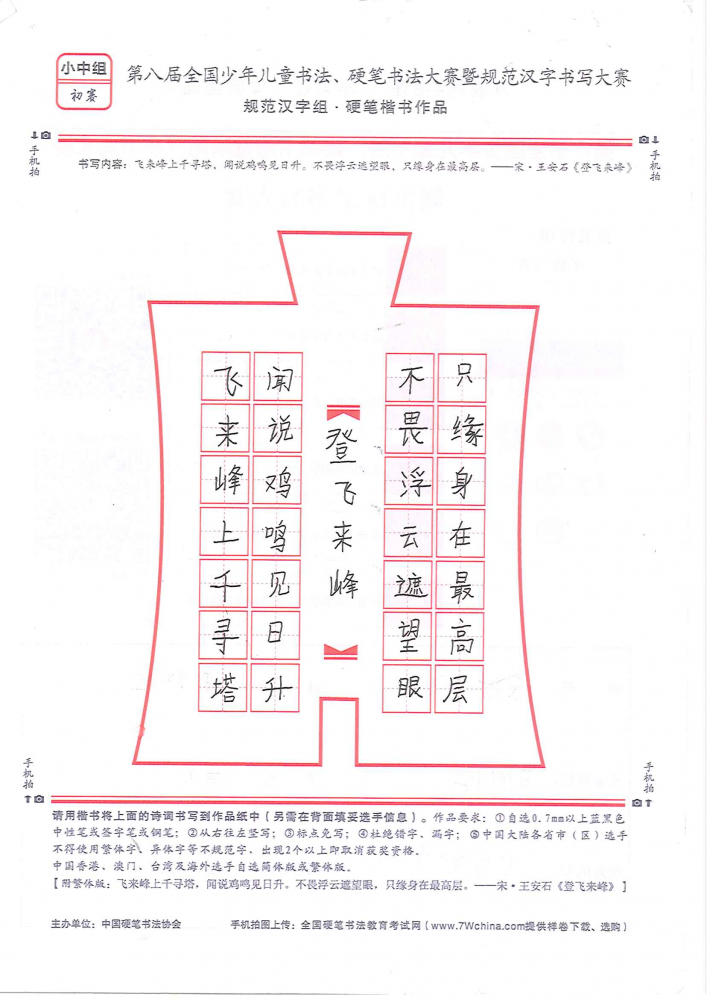 小中组
初赛
第八届全国少年儿童书法、硬笔书法大赛暨规范汉字书写大赛
规范汉字组·硬笔楷书作品
手机拍
手机拍
书写内容：飞来峰上千寻塔，闻说鸡鸣见日升。不畏浮云遮望眼，只缘身在最高层。——宋·王安石《登飞来峰》
飞来峰上千寻塔
闻说鸡鸣见日升
登飞来峰
不畏浮云遮望眼
只缘身在最高层
手机拍
手机拍
请用楷书将上面的诗词书写到作品纸中（另需在背面填妥选手信息）。作品要求：①自选0.7mm以上蓝黑色
中性笔或签字笔或钢笔；②从右往左竖写；③标点免写；④杜绝错字、漏字；⑤中国大陆各省市（区）选手
不得使用繁体字、异体字等不规范字，出现2个以上即取消获奖资格。
中国香港、澳门、台湾及海外选手自选简体版或繁体版。
【附繁体版：飞来峰上千寻塔，闻说鸡鸣见日升。不畏浮云遮望眼，只缘身在最高层。——宋·王安石《登飞来峰》】
主办单位：中国硬笔书法协会 手机拍图上传：全国硬笔书法教育考试网（www.7Wchina.com提供样卷下载、选购）